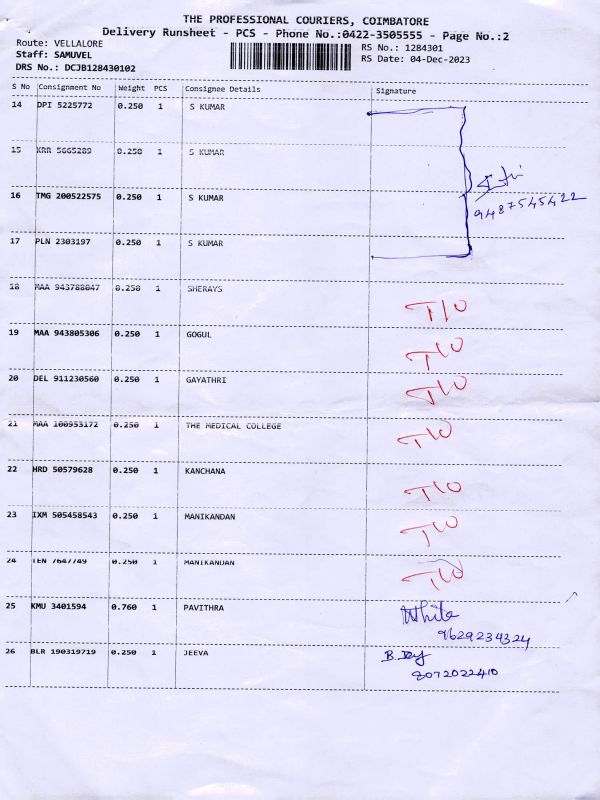 THE PROFESSIONAL COURIERS, COIMBATORE
Delivery Runsheet - PCS - Phone No.:0422-3505555 - Page No.:2
Route: VELLALORE RS No.: 1284301
Staff: SAMUVEL RS Date: 04-Dec-2023
DRS No.: DCJB128430102
S No Consignment No Weight PCS Consignee Details Signature
14 DPI 5225772 0.250 1 S KUMAR
15 KRR 5665289 0.250 1 S KUMAR
9487545422
16 TMG 200522575 0.250 1 S KUMAR
17 PLN 2303197 0.250 1 S KUMAR
18 MAA 943788047 0.250 1 SHERAYS T/O
19 MAA 943805306 0.250 1 GOGUL T/O
20 DEL 911230560 0.250 1 GAYATHRI T/O
21 MAA 100953172 0.250 1 THE MEDICAL COLLEGE T/O
22 HRD 50579628 0.250 1 KANCHANA T/O
23 IXM 505458543 0.250 1 MANIKANDAN T/O
24 TEN 7647749 0.250 1 MANIKANDAN T/O
25 KMU 3401594 0.760 1 PAVITHRA
9629234324
26 BLR 190319719 0.250 1 JEEVA
8072022410